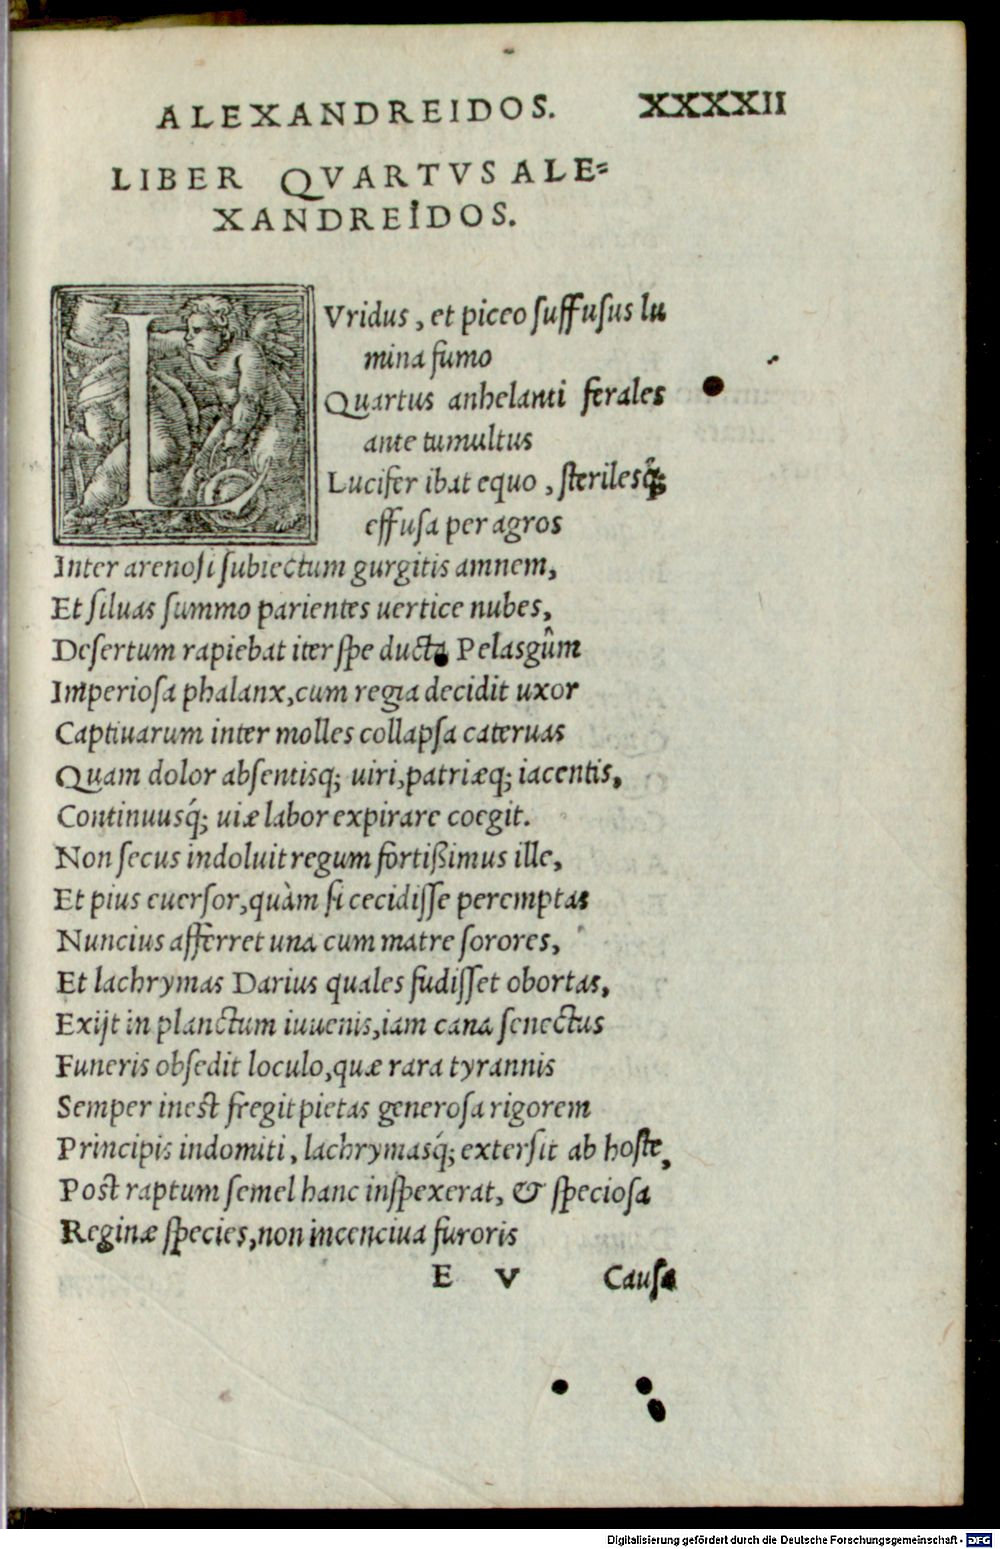 ALEXANDREIDOS. XXXXII
LIBER QVARTVS ALE=
XANDREIDOS.
LVridus, et piceo ſuffuſus lu
mina fumo
Quartus anhelanti ferales
ante tumultus
Lucifer ibat equo, ſterilesq́;
effuſa per agros
Inter arenoſi ſubiectum gurgitis amnem,
Et ſiluas ſummo parientes uertice nubes,
Deſertum rapiebat iter ſpe ducta Pelasgûm
Imperioſa phalanx, cum regia decidit uxor
Captiuarum inter molles collapſa cateruas
Quam dolor abſentisq; uiri, patriæq; iacentis,
Continuusq́; uiæ labor expirare coegit.
Non ſecus indoluit regum fortißimus ille,
Et pius euerſor, quàm ſi cecidiſſe peremptas
Nuncius afferret una cum matre ſorores,
Et lachrymas Darius quales fudiſſet obortas,
Exijt in planctum iuuenis, iam cana ſenectus
Funeris obſedit loculo, quæ rara tyrannis
Semper ineſt fregit pietas generoſa rigorem
Principis indomiti, lachrymasq́; exterſit ab hoſte,
Poſt raptum ſemel hanc inſpexerat, & ſpecioſa
Reginæ ſpecies, non incenciua furoris
E V Cauſa
Digitalisierung gefördert durch die Deutsche Forschungsgemeinschaft - DFG